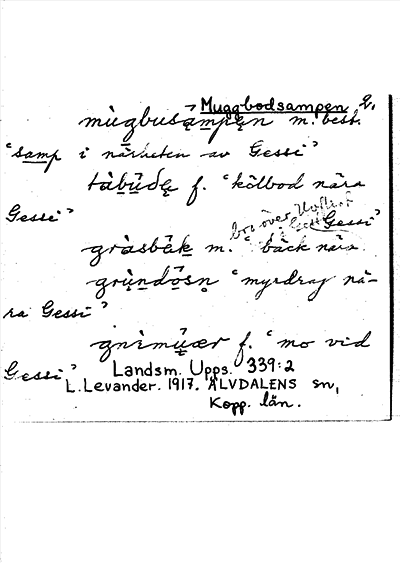 Muggbodsampen 2.
mùgbusąmpęn m. best.
"samp i närheten av Gessi"
tàbùdę f. "kölbod nära
Gessi"
bäck över
Gessi"
gràsbäk m. "bäck nära
grùndösn "myrdrag nä-
ra Gessi"
gnimùær f. "mo vid
Gessi"
Landsm. Upps. 339:2
L. Levander. 1917. ÄLVDALENS sn,
Kopp. län.